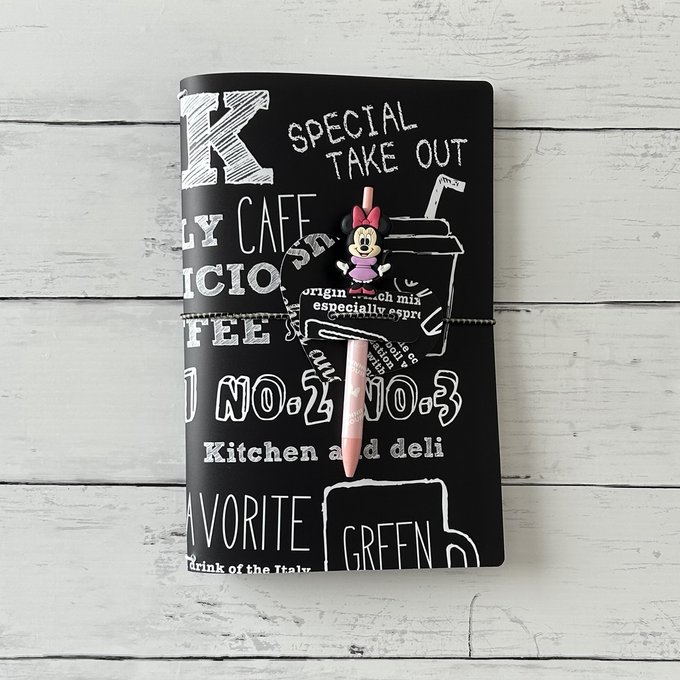 K
SPECIAL
TAKE OUT
LY CAFE
ICIO
FFEE
origin which mix
especially espre
with
NO.2 NO.3
Kitchen and deli
AVORITE
GREEN
drink of the Italy